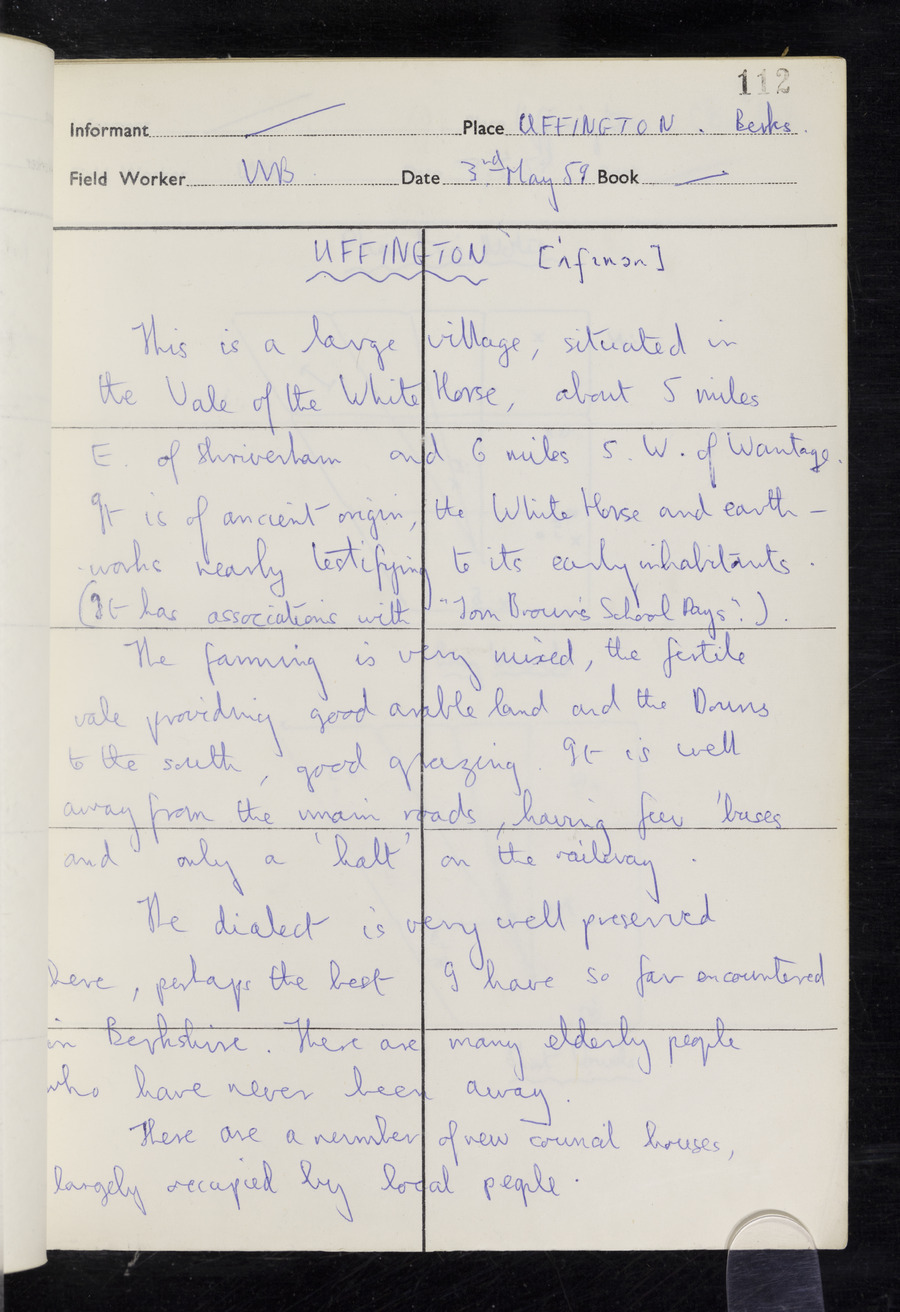 112
Informant Place UFFINGTON. Berks.
Field Worker WB Date 3rd May 59 Book
UFFINGTON ['ʌfɪnən]
This is a large village, situated in
the Vale of the White Horse, about 5 miles
E. of Shrivenham and 6 miles S.W. of Wantage.
It is of ancient origin, the White Horse and earth-
works nearby testifying to its early inhabitants.
(It has associations with "Tom Brown's School Days".).
The farming is very mixed, the fertile
vale providing good arable land and the Downs
to the south, good grazing. It is well
away from the main roads, having few 'buses
and only a 'halt' on the railway.
The dialect is very well preserved
here, perhaps the best I have so far encountered
in Berkshire. There are many elderly people
who have never been away.
There are a number of new council houses,
largely occupied by local people.